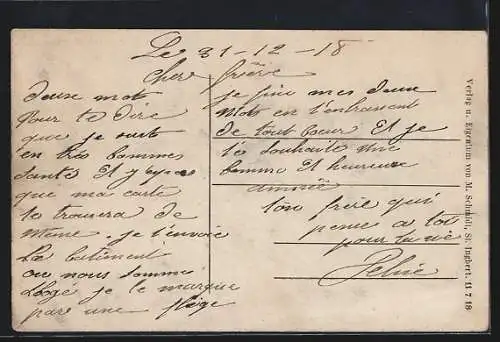 Le 31-12-18
Cher frère
deux mot
Pour te dire
que je suit
en très bonnes
santé Et j'espère
que ma carte
te trouvera de
meme. je t'envoie
Le batiment
ou nous sommes
Logé je le marque
pare une
je fini mes deux
mots en t'enbrasant
de tout coeur Et je
tes souhaite une
bonne Et heureuse
année
ton frère qui
pense a toi
pour la vie
Verlag u. Eigentum von M. Schmidt, St. Ingbert. 11 7 18